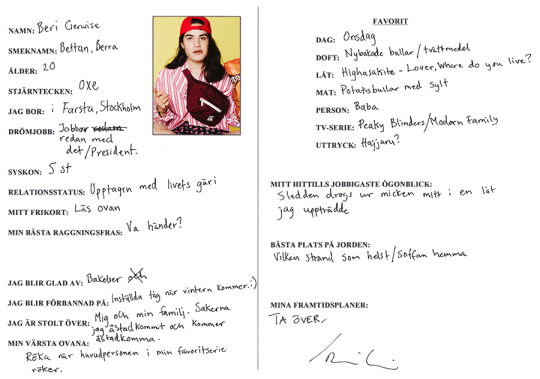 NAMN: Beri Gerwise
SMEKNAMN: Beltan, Berra
ÅLDER: 20
STJÄRNTECKEN: Oxe
JAG BOR: i Farsta, Stockholm
DRÖMJOBB: Jobbar redan
redan med
det/President.
SYSKON: 5 st
RELATIONSSTATUS: Upptagen med livets gäri
MITT FRIKORT: Läs ovan
MIN BÄSTA RAGGNINGSFRAS: Va händer?
JAG BLIR GLAD AV: Bakelser och
JAG BLIR FÖRBANNAD PÅ: Inställda tåg när vintern kommer. :)
JAG ÄR STOLT ÖVER: Mig och min familj. Sakerna
jag åstadkommit och kommer
åstadkomma.
MIN VÄRSTA OVANA:
Röka när huvudpersonen i min favoritserie
röker.
FAVORIT
DAG: Onsdag
DOFT: Nybakade bullar/tvättmedel
LÅT: Highasakite - Lover, Where do you live?
MAT: Potatisbullar med sylt
PERSON: Baba
TV-SERIE: Peaky Blinders/Modern Family
UTTRYCK: Hajjaru?
MITT HITTILLS JOBBIGASTE ÖGONBLICK:
Sladden drogs ur micken mitt i en låt
jag uppträdde
BÄSTA PLATS PÅ JORDEN:
Vilken strand som helst/Soffan hemma
MINA FRAMTIDSPLANER:
TA ÖVER.